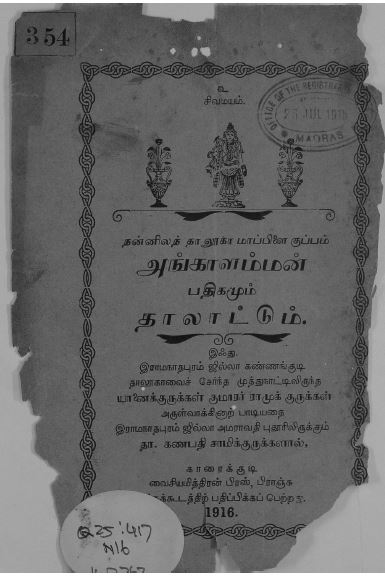 354
உ
சிவமயம்.
OFFICE OF THE REGISTRAR
JUL 1916
MADRAS
நன்னிலத் தாலூகா மாப்பிளை குப்பம்
அங்காளம்மன்
பதிகமும்
தாலாட்டும்.
இஃது.
இராமநாதபுரம் ஜில்லா கண்ணங்குடி
தாலூகாவைச் சேர்ந்த
யானைக்குருக்கள் குமாரர் ராமுக் குருக்கள்
அருள்வாக்கினாற் பாடியதை
இராமநாதபுரம் ஜில்லா அமராவதி புதூரிலிருக்கும்
தா. கணபதி சாமிக்குருக்களால்,
காரைக்குடி
வைசியமித்திரன் பிரஸ், பிராஞ்சு
பதிப்பிக்கப் பெற்றது.
1916.
Q25:417
N16